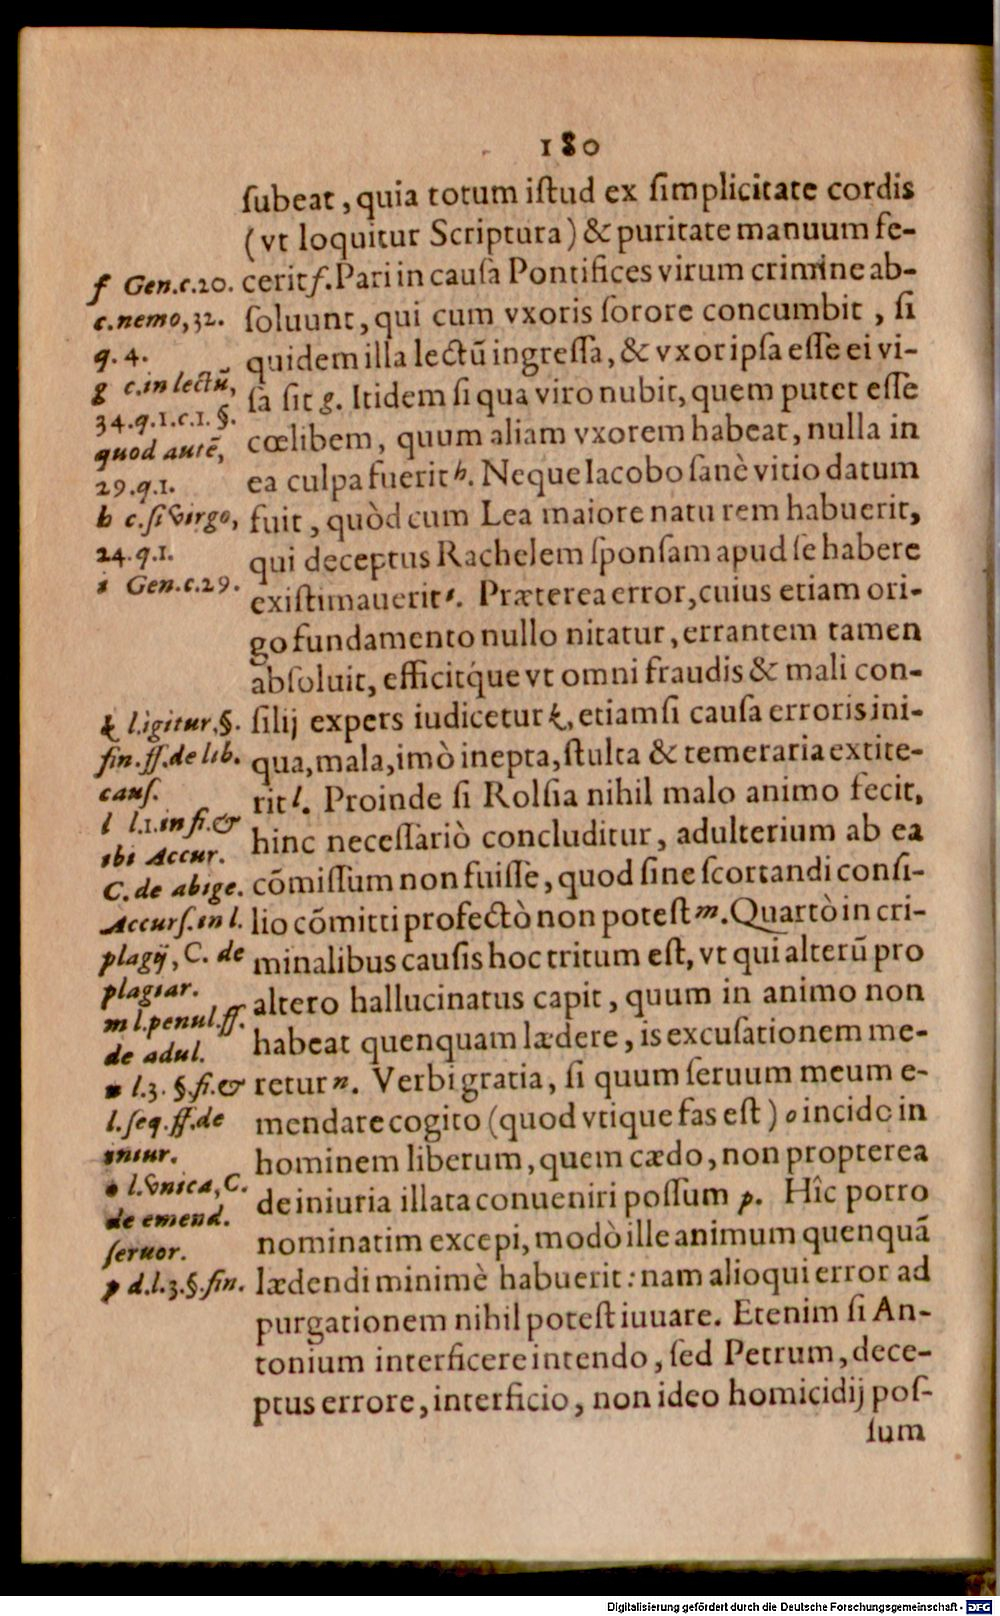 180
ſubeat, quia totum iſtud ex ſimplicitate cordis
(vt loquitur Scriptura) & puritate manuum fe-
cerit f. Pari in cauſa Pontifices virum crimine ab-
ſoluunt, qui cum vxoris ſorore concumbit, ſi
quidem illa lectū ingreſſa, & vxor ipſa eſſe ei vi-
ſa ſit g. Itidem ſi qua viro nubit, quem putet eſſe
cœlibem, quum aliam vxorem habeat, nulla in
ea culpa fuerit h. Neque Iacobo ſanè vitio datum
fuit, quòd cum Lea maiore natu rem habuerit,
qui deceptus Rachelem ſponſam apud ſe habere
exiſtimauerit i. Præterea error, cuius etiam ori-
go fundamento nullo nitatur, errantem tamen
abſoluit, efficitq́ue vt omni fraudis & mali con-
ſilij expers iudicetur k, etiamſi cauſa erroris ini-
qua, mala, imò inepta, ſtulta & temeraria extite-
rit l. Proinde ſi Rolſia nihil malo animo fecit,
hinc neceſſariò concluditur, adulterium ab ea
cōmiſſum non fuiſſe, quod ſine ſcortandi conſi-
lio cōmitti profectò non poteſt m. Quartò in cri-
minalibus cauſis hoc tritum eſt, vt qui alterū pro
altero hallucinatus capit, quum in animo non
habeat quenquam lædere, is excuſationem me-
retur n. Verbi gratia, ſi quum ſeruum meum e-
mendare cogito (quod vtique fas eſt) o incido in
hominem liberum, quem cædo, non propterea
de iniuria illata conueniri poſſum p. Hîc porro
nominatim excepi, modò ille animum quenquā
lædendi minimè habuerit: nam alioqui error ad
purgationem nihil poteſt iuuare. Etenim ſi An-
tonium interficere intendo, ſed Petrum, dece-
ptus errore, interficio, non ideo homicidij poſ-
ſum
f Gen.c.20.
c.nemo, 32.
q. 4.
g c.in lectū,
34.q.1.c.1.§.
quod autē,
29.q.1.
h c.ſi virgo,
24.q.1.
i Gen.c.29.
k l.igitur,§.
fin.ff.de lib.
cauſ.
l l.1.in fi.&
ibi Accur.
C. de abige.
Accurſ.in l.
plagij, C. de
plagiar.
m l.penul.ff.
de adul.
n l.3. §.fi.&
l.ſeq.ff.de
iniur.
o l.vnica, C.
de emend.
ſeruor.
p d.l.3.§.fin.
Digitalisierung gefördert durch die Deutsche Forschungsgemeinschaft - DFG